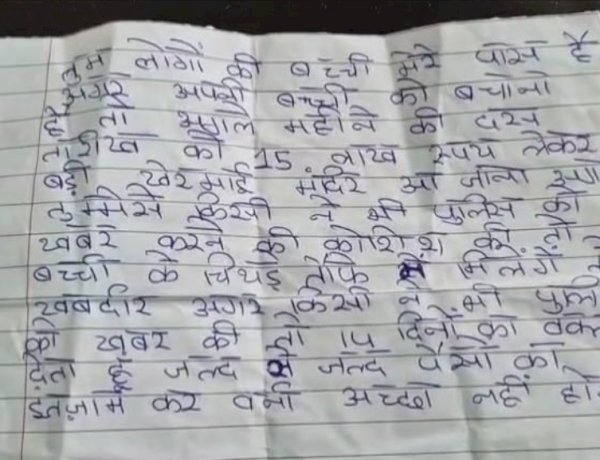 तुम लोगों की बच्ची मेरे पास है
अगर अपनी बच्ची को बचाना
है तो अगले महीने की दस
तारीख को 15 लाख रूपय लेकर
बड़ी खेरमाई मंदिर आ जाना
तुममेसे किसी ने भी पुलिस को
खबर करने की कोशिश की तो
बच्ची के चिथड़े मिलेंगे
खबरदार अगर किसी ने भी
को खबर की तो 14 दिनों का वक्त
देता हूं जल्द से जल्द पैसो का
इंतजाम कर वर्ना अच्छा नहीं